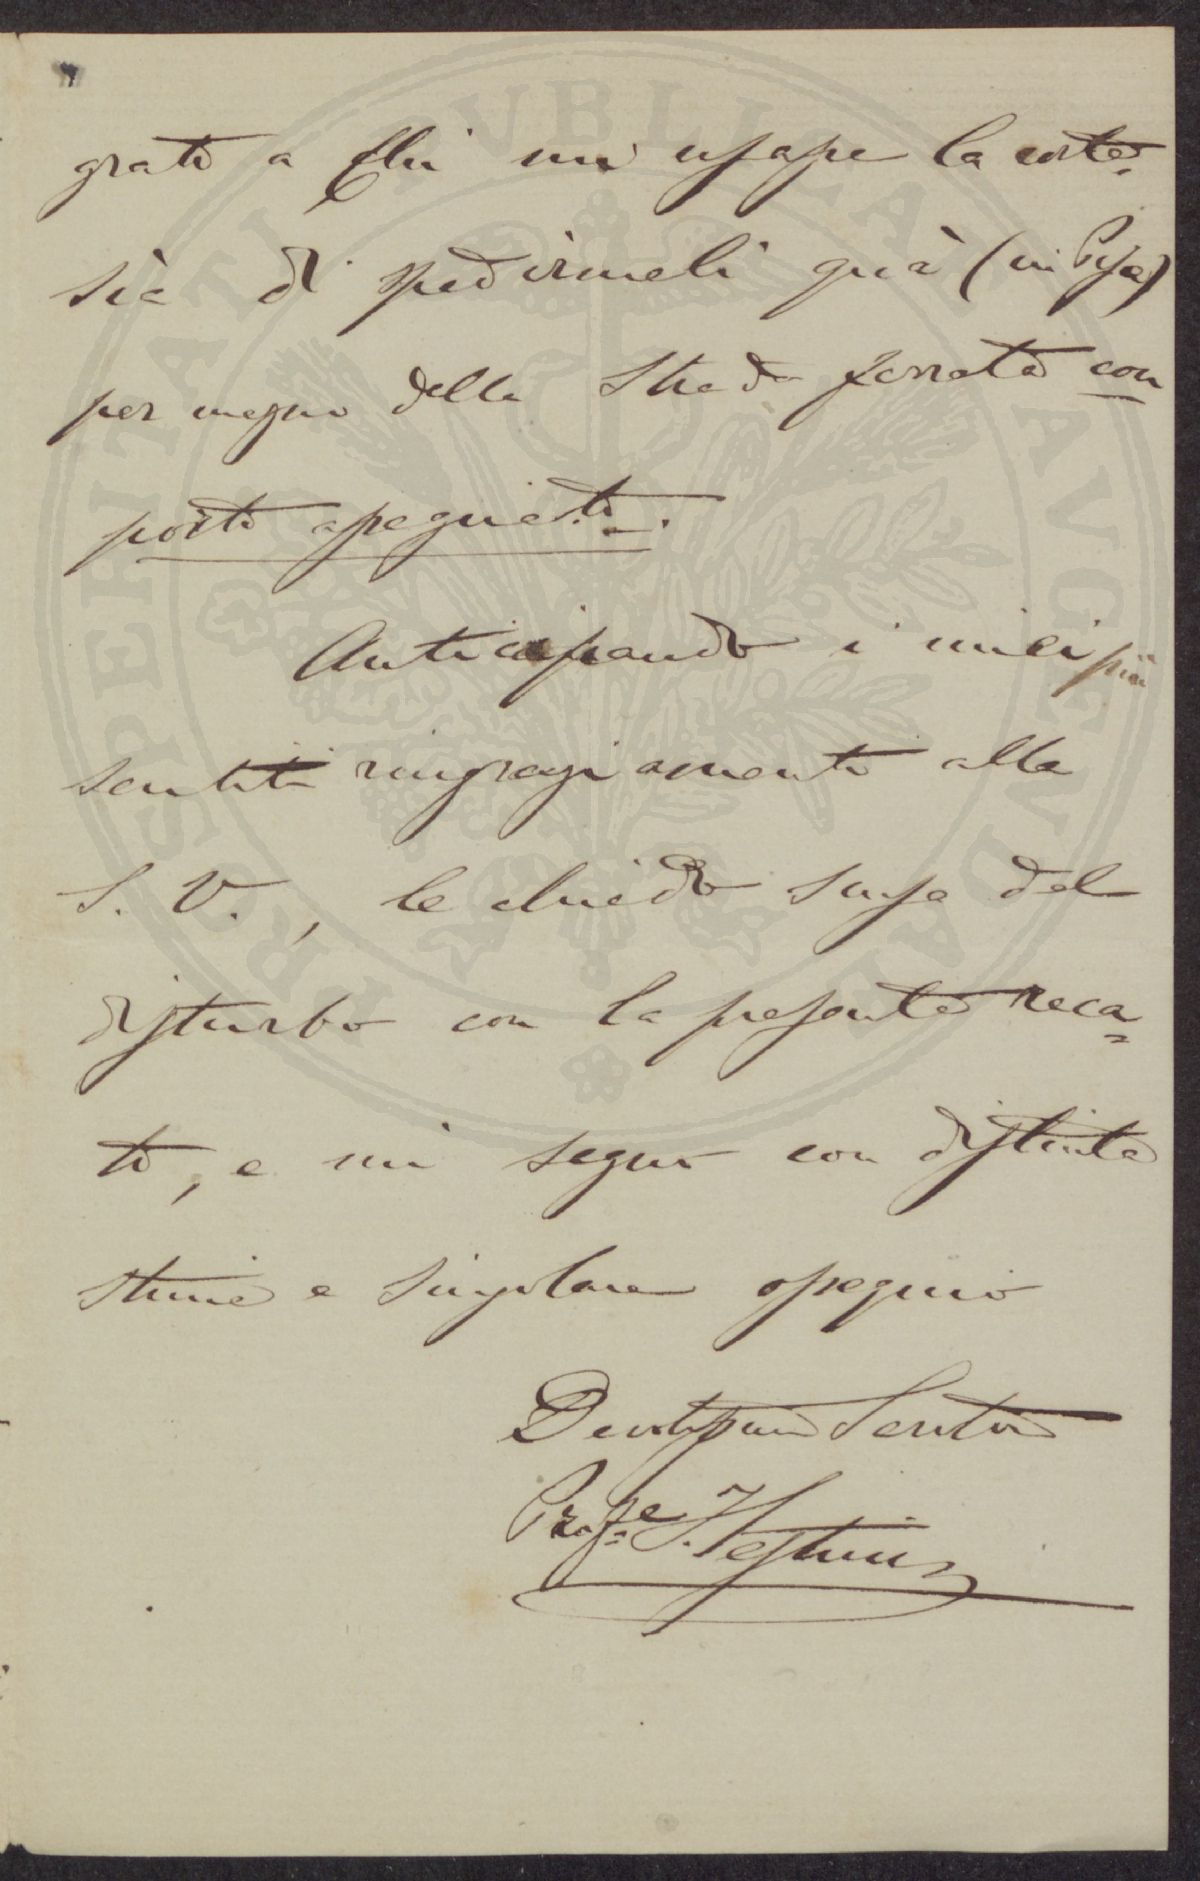 grato a chi mi usasse la corte-
sia di spedirmeli quà (in Pisa)
per mezzo della Strada ferrata con
porto assegnato.
Anticipando i miei più
sentiti ringraziamenti alla
S. V., le chiedo scusa del
disturbo con la presente reca=
to, e mi segno con distinta
stima e singolare ossequio
Devotissimo Servitore
Profre.
PROSPERITATI PVBLICAE AVGENDAE